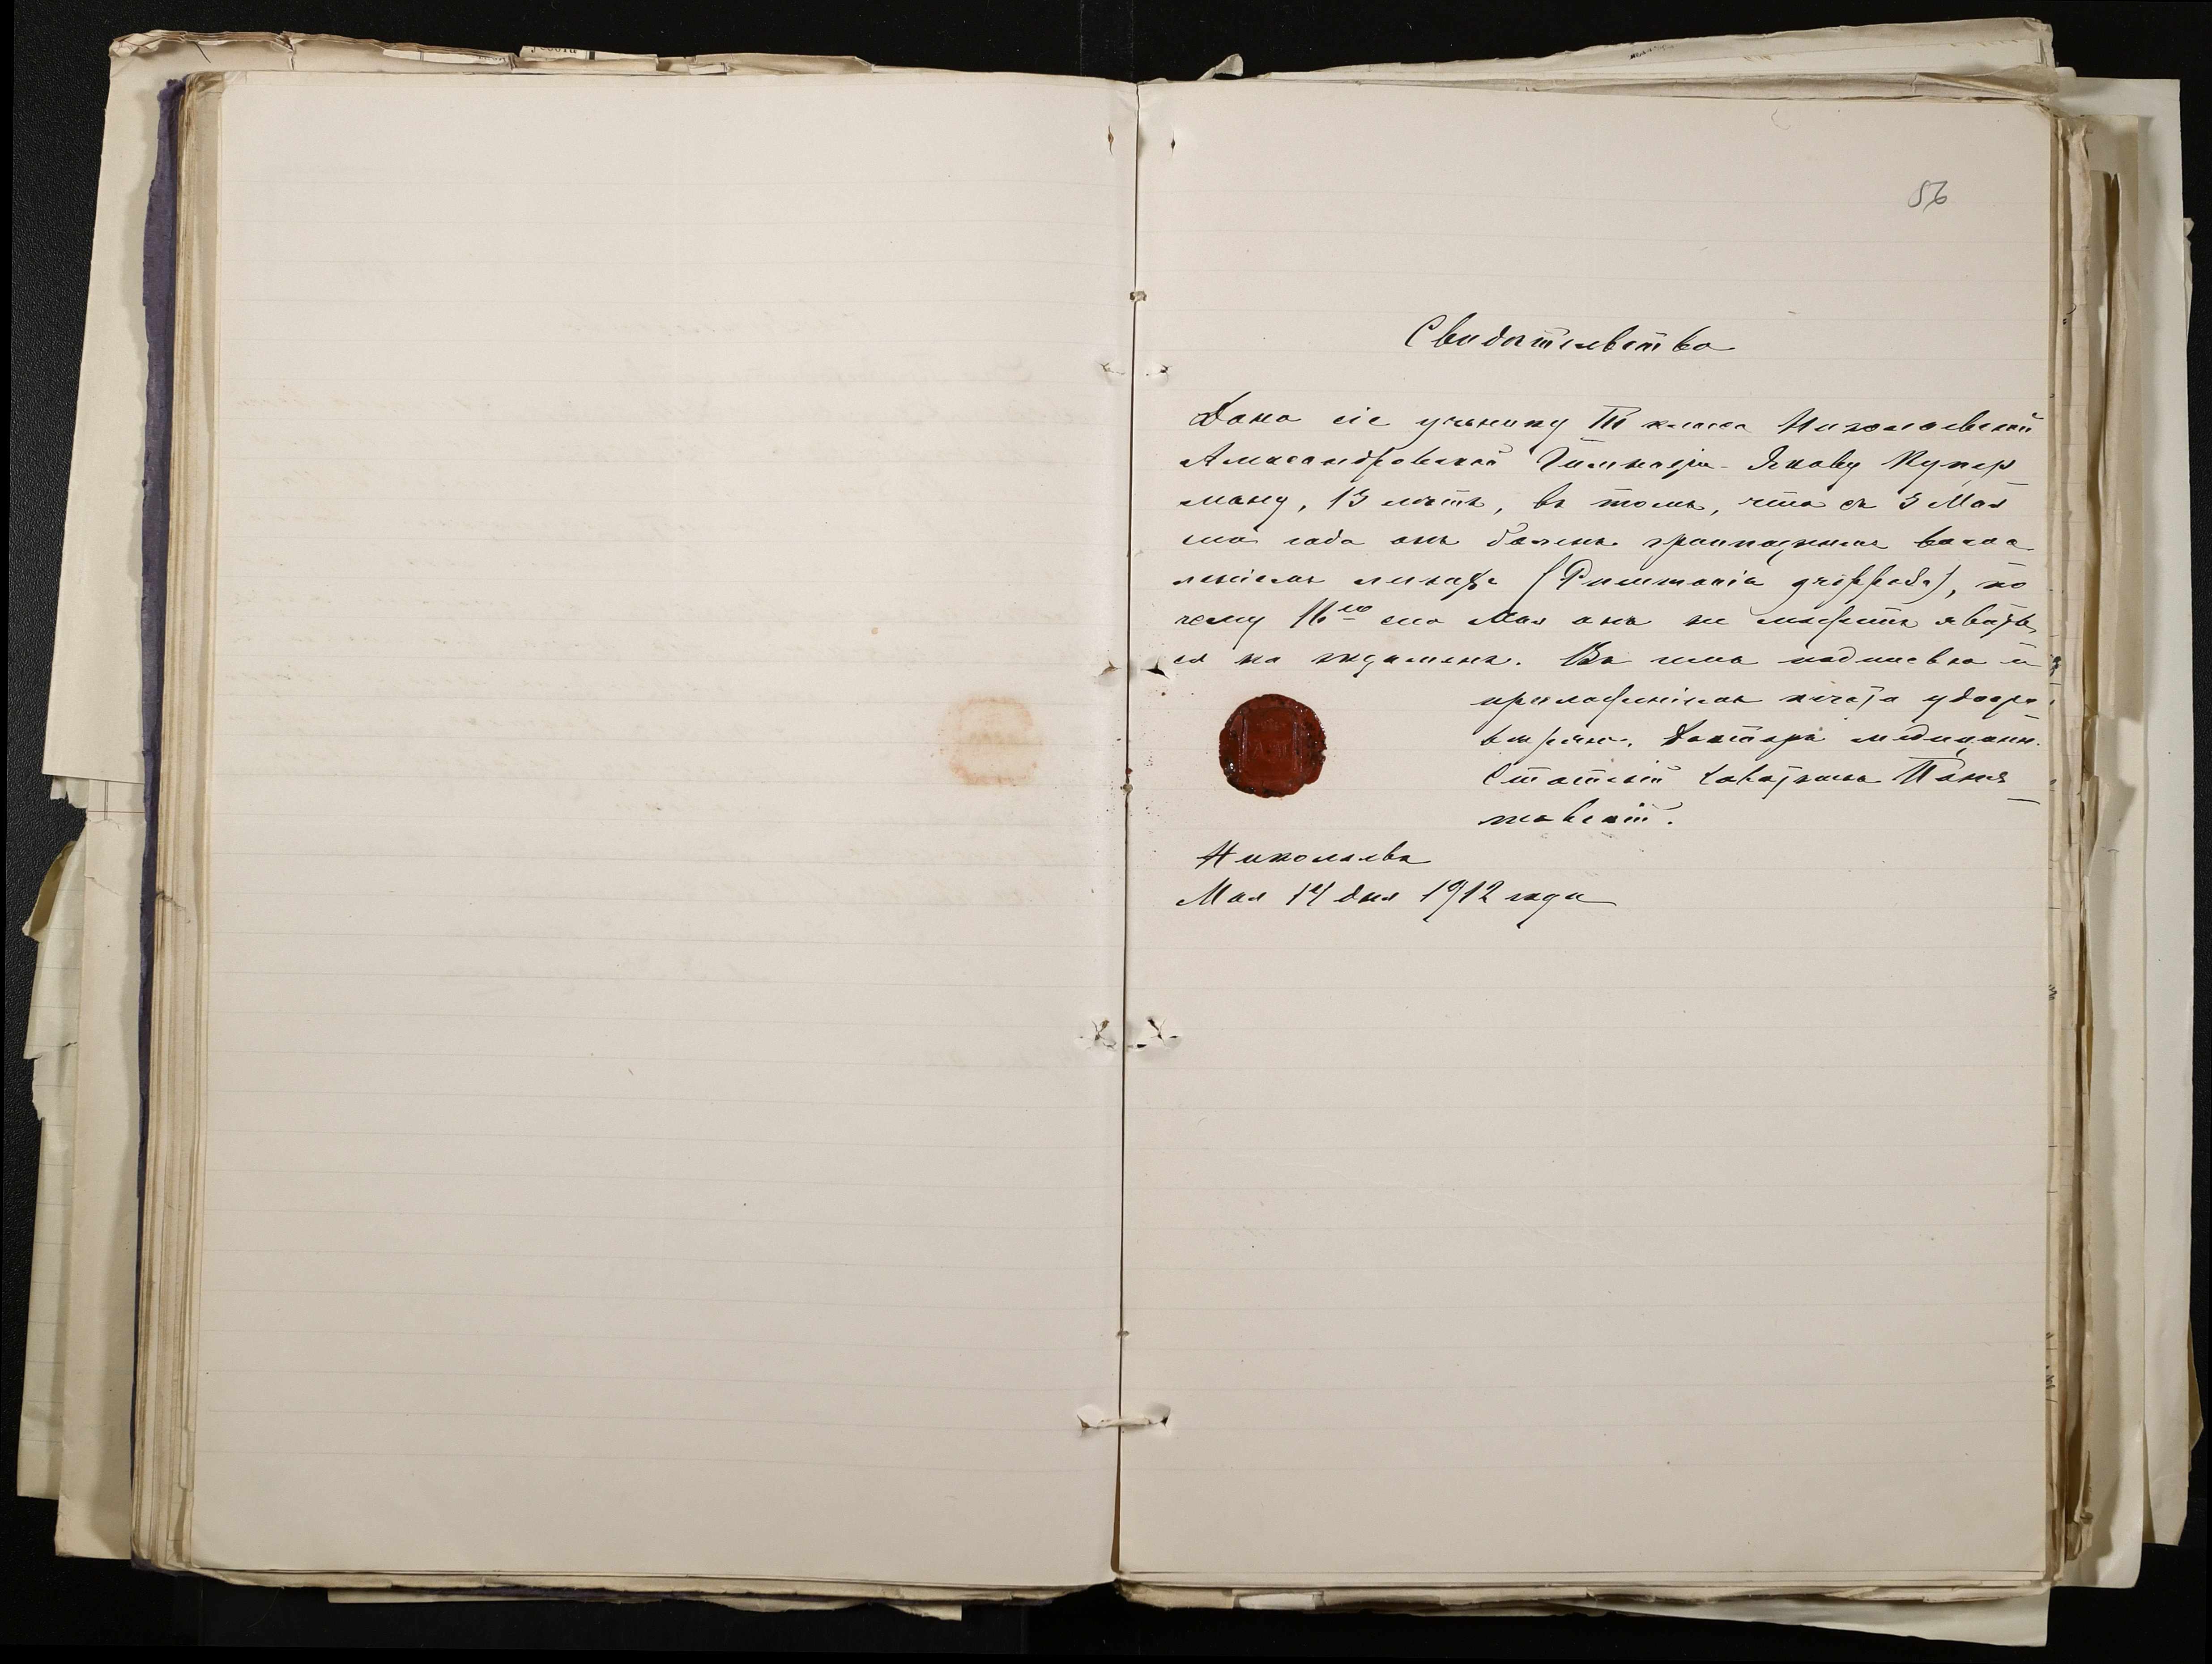 56
Свидѣтельство
Дано сіе ученику III класса Николаевской
Александровской Гимназіи Якову Купер
ману, 13 лѣтъ, въ томъ, что съ 3 Мая
сего года онъ боленъ гриппознымъ воспа
леніемъ легкихъ (Pneumonia gripposa), по
чему 16го сего Мая онъ не можетъ явить
ся на экзаменъ. Въ чемъ подписью и
приложеніемъ печати удосто
вѣряю. Докторъ медицины
Статскій Совѣтникъ Поня
товскій.
Николаевъ
Мая 14 дня 1912 года